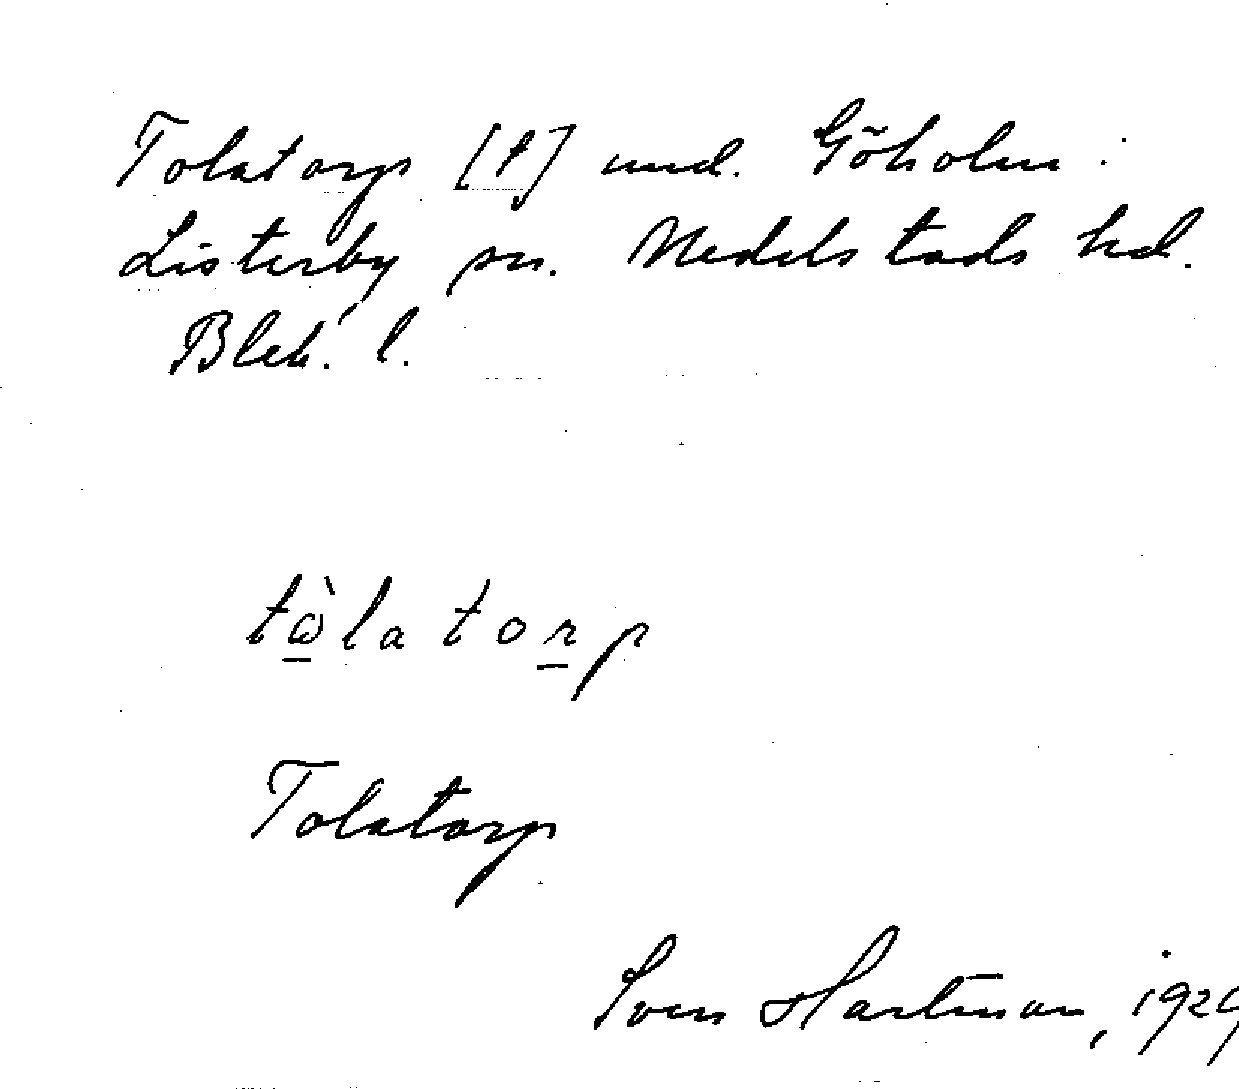 Tolatorp [t] und. Göholm.
Listerby sn. Medelstads hd.
Blek. l.
tὼ̲la tor̲p
Tolatorp
Sven Hartman, 1929